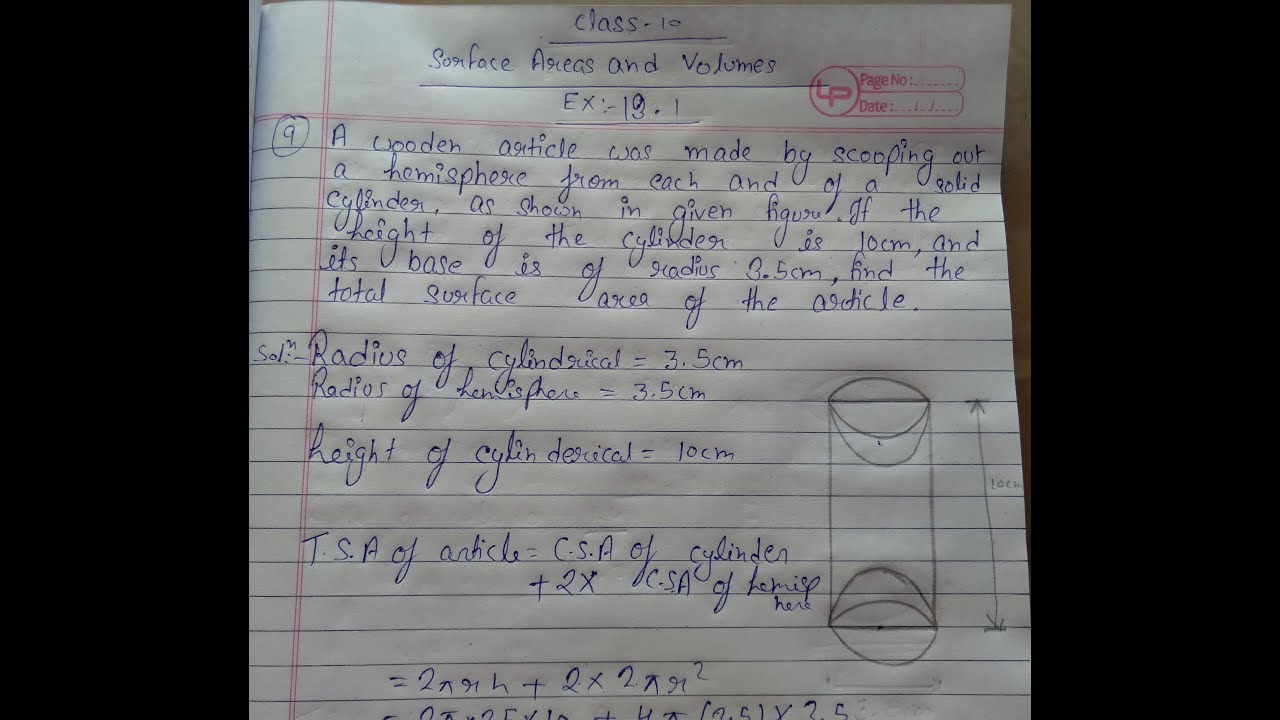 Class-10
Surface Areas and Volumes
LP
Page No:.......
Date:..../..../....
EX:-13.1
9 A wooden article was made by scooping out
a hemisphere from each and of a solid
cylinder, as shown in given figure. If the
height of the cylinder is 10cm, and
its base is of radius 3.5cm, find the
total surface area of the article.
Solⁿ:- Radius of cylindrical = 3.5cm
Radius of hemisphere = 3.5cm
height of cylinderical = 10cm
10cm
T.S.A of article = C.S.A of cylinder
+ 2× C.S.A of hemisp
here
= 2πrh + 2×2πr²